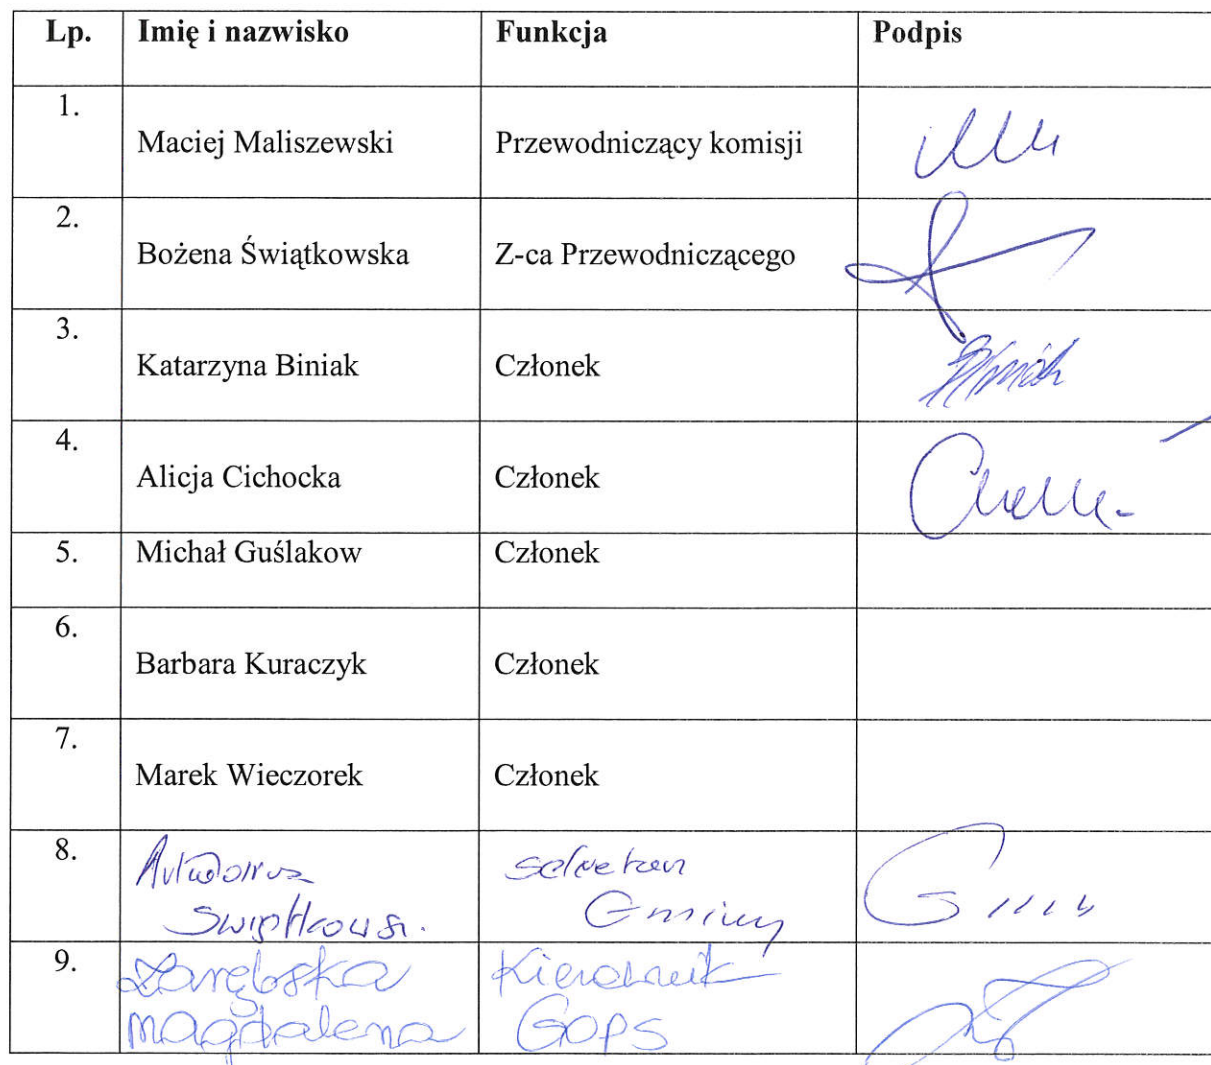 Lp. Imię i nazwisko Funkcja Podpis
1.
Maciej Maliszewski Przewodniczący komisji
2.
Bożena Świątkowska Z-ca Przewodniczącego
3.
Katarzyna Biniak Członek
4.
Alicja Cichocka Członek
5. Michał Guślakow Członek
6.
Barbara Kuraczyk Członek
7.
Marek Wieczorek Członek
8.
Gminy
9. Kierownik
Magdalena GOPS